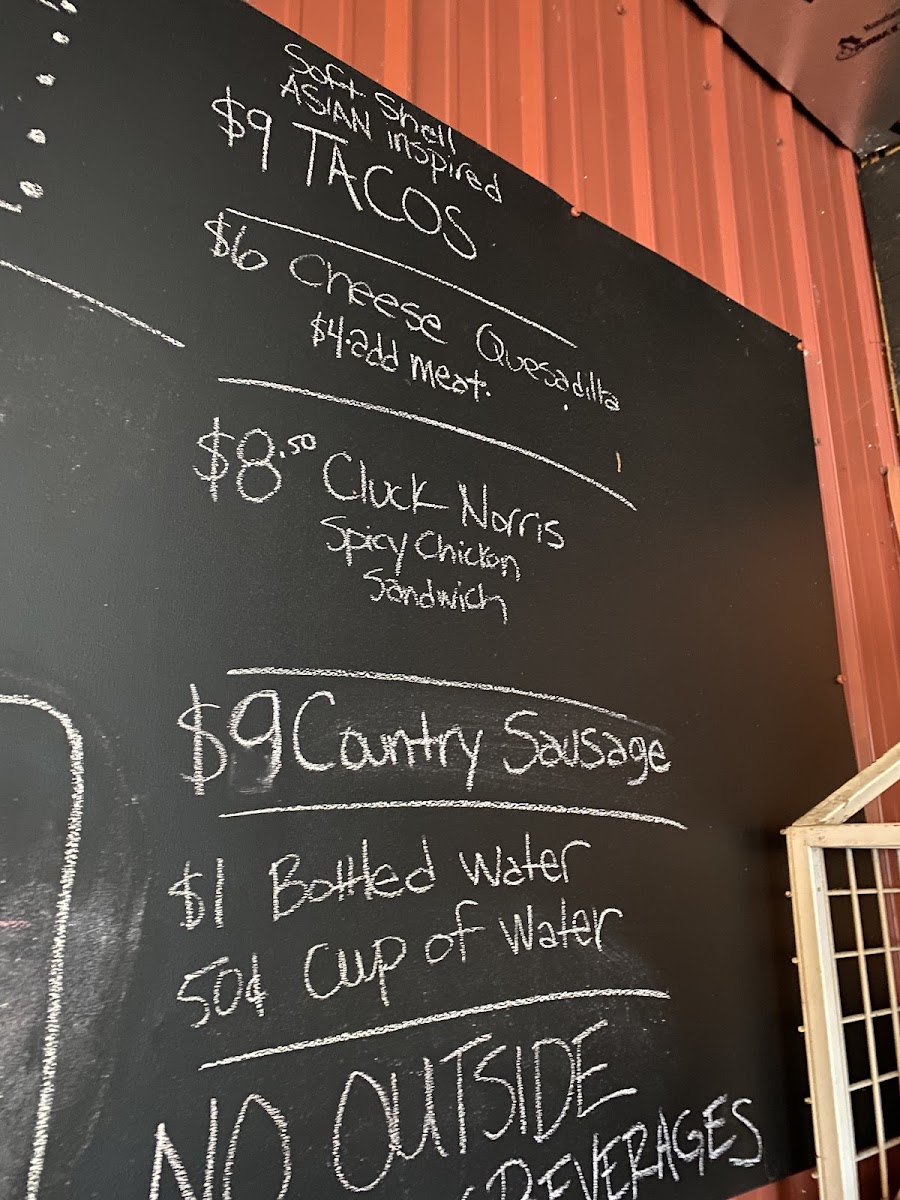 Soft Shell
ASIAN inspired
$9 TACOS
$6 Cheese Quesadilla
$4.add meat.
$8.50 Cluck Norris
Spicy Chicken
Sandwich
$9 Country Sausage
$1 Bottled Water
50¢ Cup of Water
NO OUTSIDE
BEVERAGES